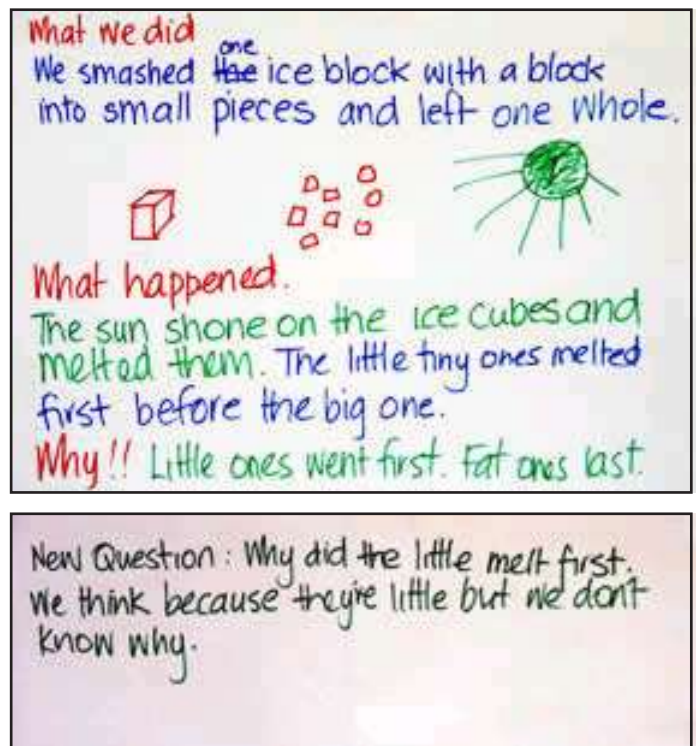 What we did
We smashed the one ice block with a block
into small pieces and left one whole.
What happened.
The sun shone on the ice cubes and
melted them. The little tiny ones melted
first before the big one.
Why!! Little ones went first. Fat ones last.
New Question: Why did the little melt first.
We think because they're little but we don't
know why.